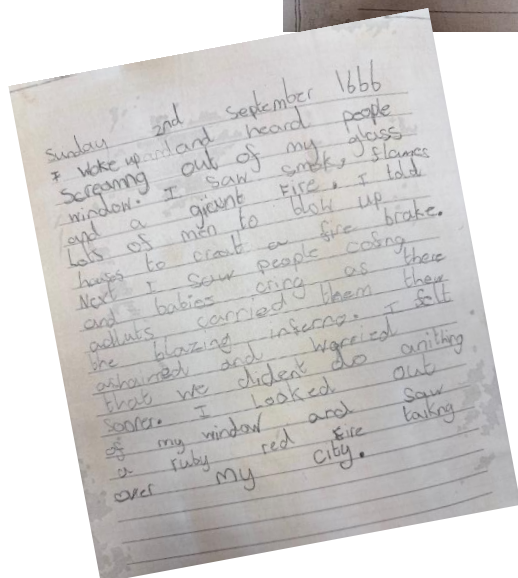 Sunday 2nd September 1666
I woke up and heard people
screaming out of my glass
window. I saw smok, flames
and a gieunt fire. I told
Lots of men to blow up
houses to creat a fire brake.
Next I saw people cofing
and babies cring as there
adluts carried them thew
the blazing inferno. I felt
ashamed and worried
that we dident do anithing
sooner. I looked out
of my window and saw
a ruby red fire taikng
over my city.